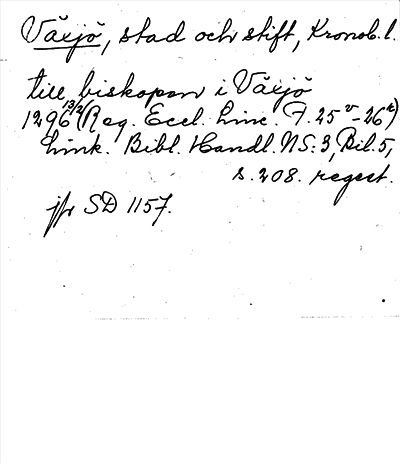 Växjö, stad och stift, Kronob. l.
till biskopen i Växjö
1296 13/2 (Reg. Eccl. Linc. F. 25 v - 26 r)
Link. Bibl. Handl. NS: 3, Bil. 5,
s. 208. regest.
jfr SD 1157.